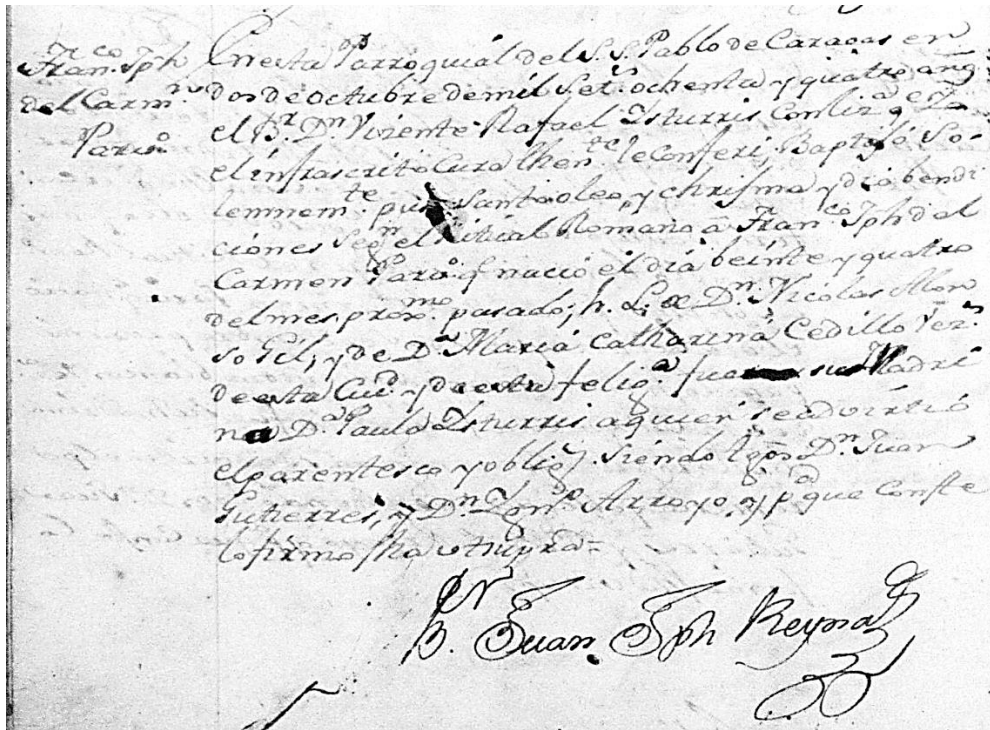 Fran.co Jph
del Carm.n
Paris.o
En esta Parroquial del S. S. Pablo de Caracas en
dos de octubre de mil Set.s ochenta y quatro añ.s
el B.r D.n Vizente Rafael Ysturris con liz.a de
el infrascrito Cura then.te le Conferi, Baptisó So
lemnem.te puso santo oleo, y chrisma y dio bendi
ciones seg.n el ritual Romano â Fran.co Jph del
Carmen q.e nacio el dia beinte y quatro
del mes prox.mo pasado; h. L. de D.n Nicolas Alon
so Gil, y de D.a Maria Catharina Cedillo Vez.s
de esta Ciu.d y de esta felig.a fue su Madri
na D.a Paula Ysturris a quien se advirtió
el parentesco y oblig.n siendo tgos D.n Juan
Gutierres, y D.n Arroyo, y p.a que Conste
lo firmo fha ut supra=
B.r Juan Jph Reyna